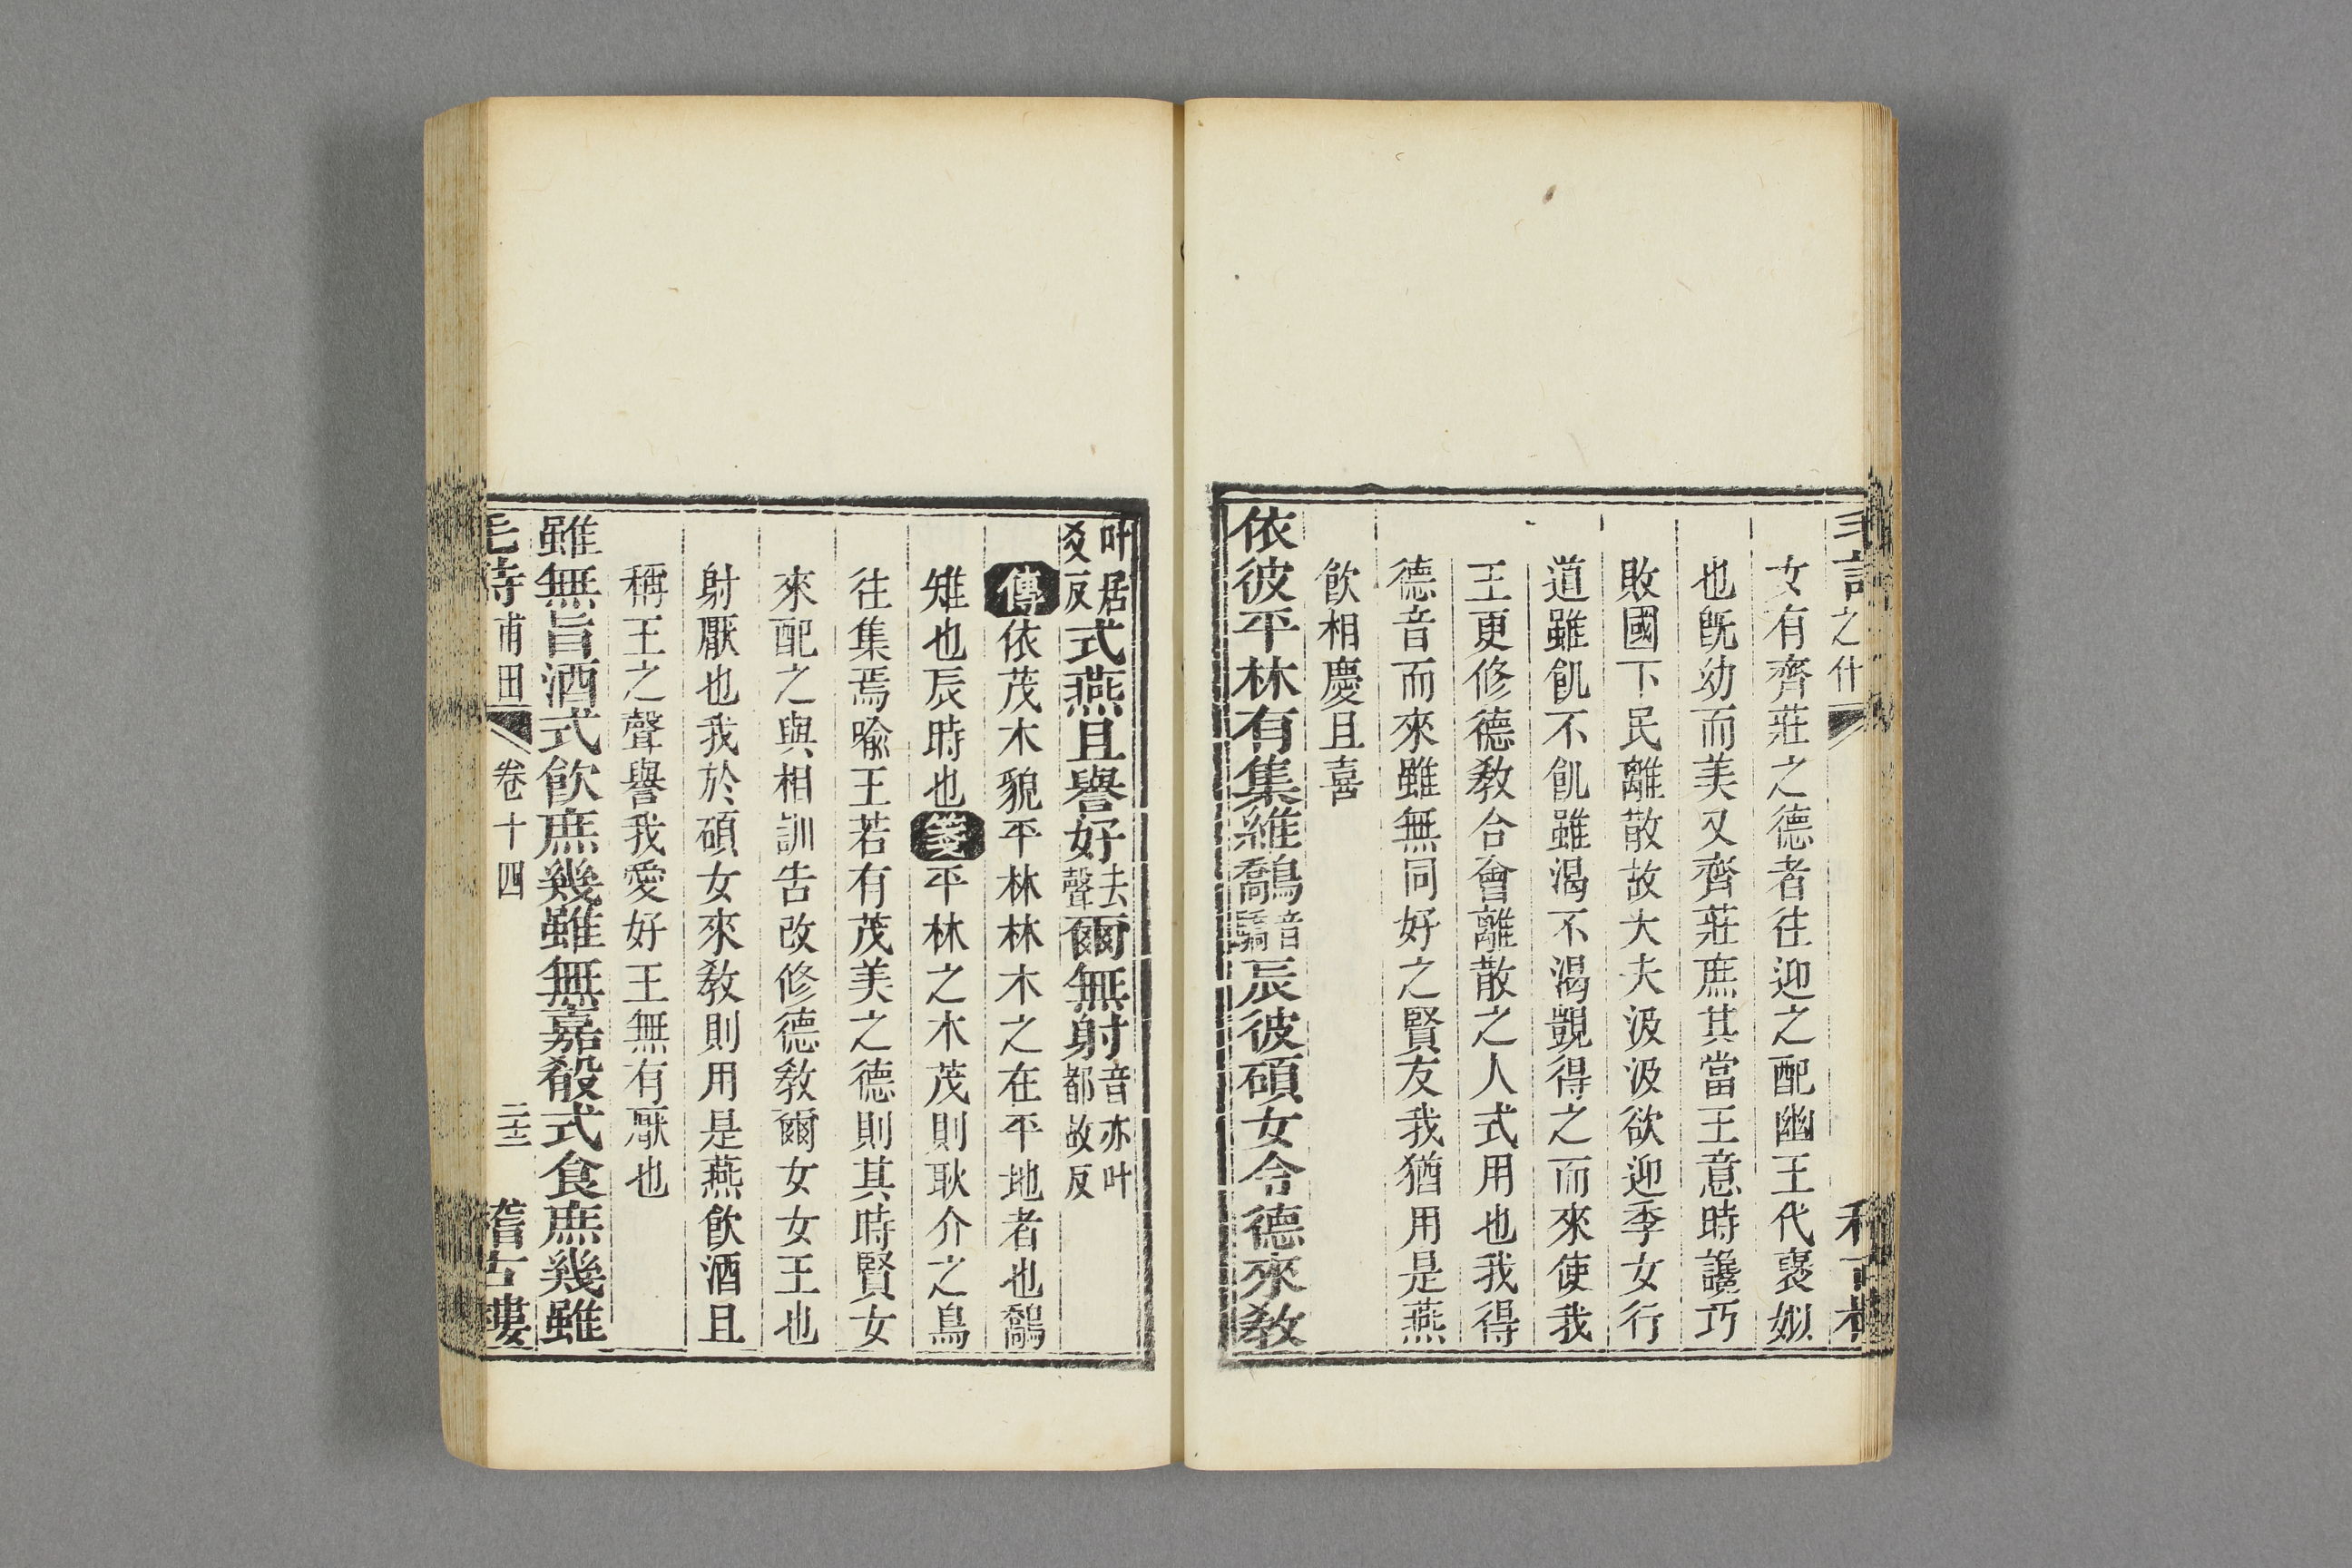 毛詩之什
女有齊莊之德者往迎之配幽王代襃姒
也旣幼而美又齊莊庶其當王意時讒巧
敗國下民離散故大夫汲汲欲迎季女行
道雖飢不飢雖渴不渴覬得之而來使我
王更修德敎合會離散之人式用也我得
德音而來雖無同好之賢友我猶用是燕
飮相慶且喜
依彼平林有集維鷮音驕辰彼碩女令德來敎
叶居爻反式燕且譽好去聲爾無射音亦叶都故反
傳依茂木貌平林林木之在平地者也鷮
雉也辰時也箋平林之木茂則耿介之鳥
往集焉喻王若有茂美之德則其時賢女
來配之與相訓告改修德敎爾女女王也
射厭也我於碩女來敎則用是燕飮酒且
稱王之聲譽我愛好王無有厭也
雖無旨酒式飮庶幾雖無嘉殽式食庶幾雖
毛詩甫田 卷十四 二十三 稽古樓